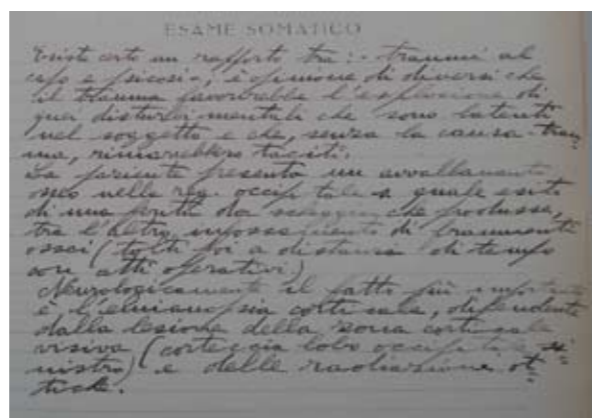 ESAME SOMATICO
Esiste certo un rapporto tra: traumi al
capo e psicosi; è opinione di diversi che
il trauma favorirebbe l'esplosione di
quei disturbi mentali che sono latenti
nel soggetto e che, senza la causa trau=
ma, rimarrebbero taciti.
La paziente presenta un avvallamento
osseo nella reg. occipitale quale esito
di una ferita da scheggia che produsse,
tra l'altro, infossamento di frammenti
ossei (tolti poi a distanza di tempo
con atti operativi)
Neurologicamente il fatto più importante
è l'emianopsia corticale, dipendente
dalla lesione della zona corticale
visiva (corteccia lobo occipitale si=
nistro) e delle radiazione ot=
tiche.